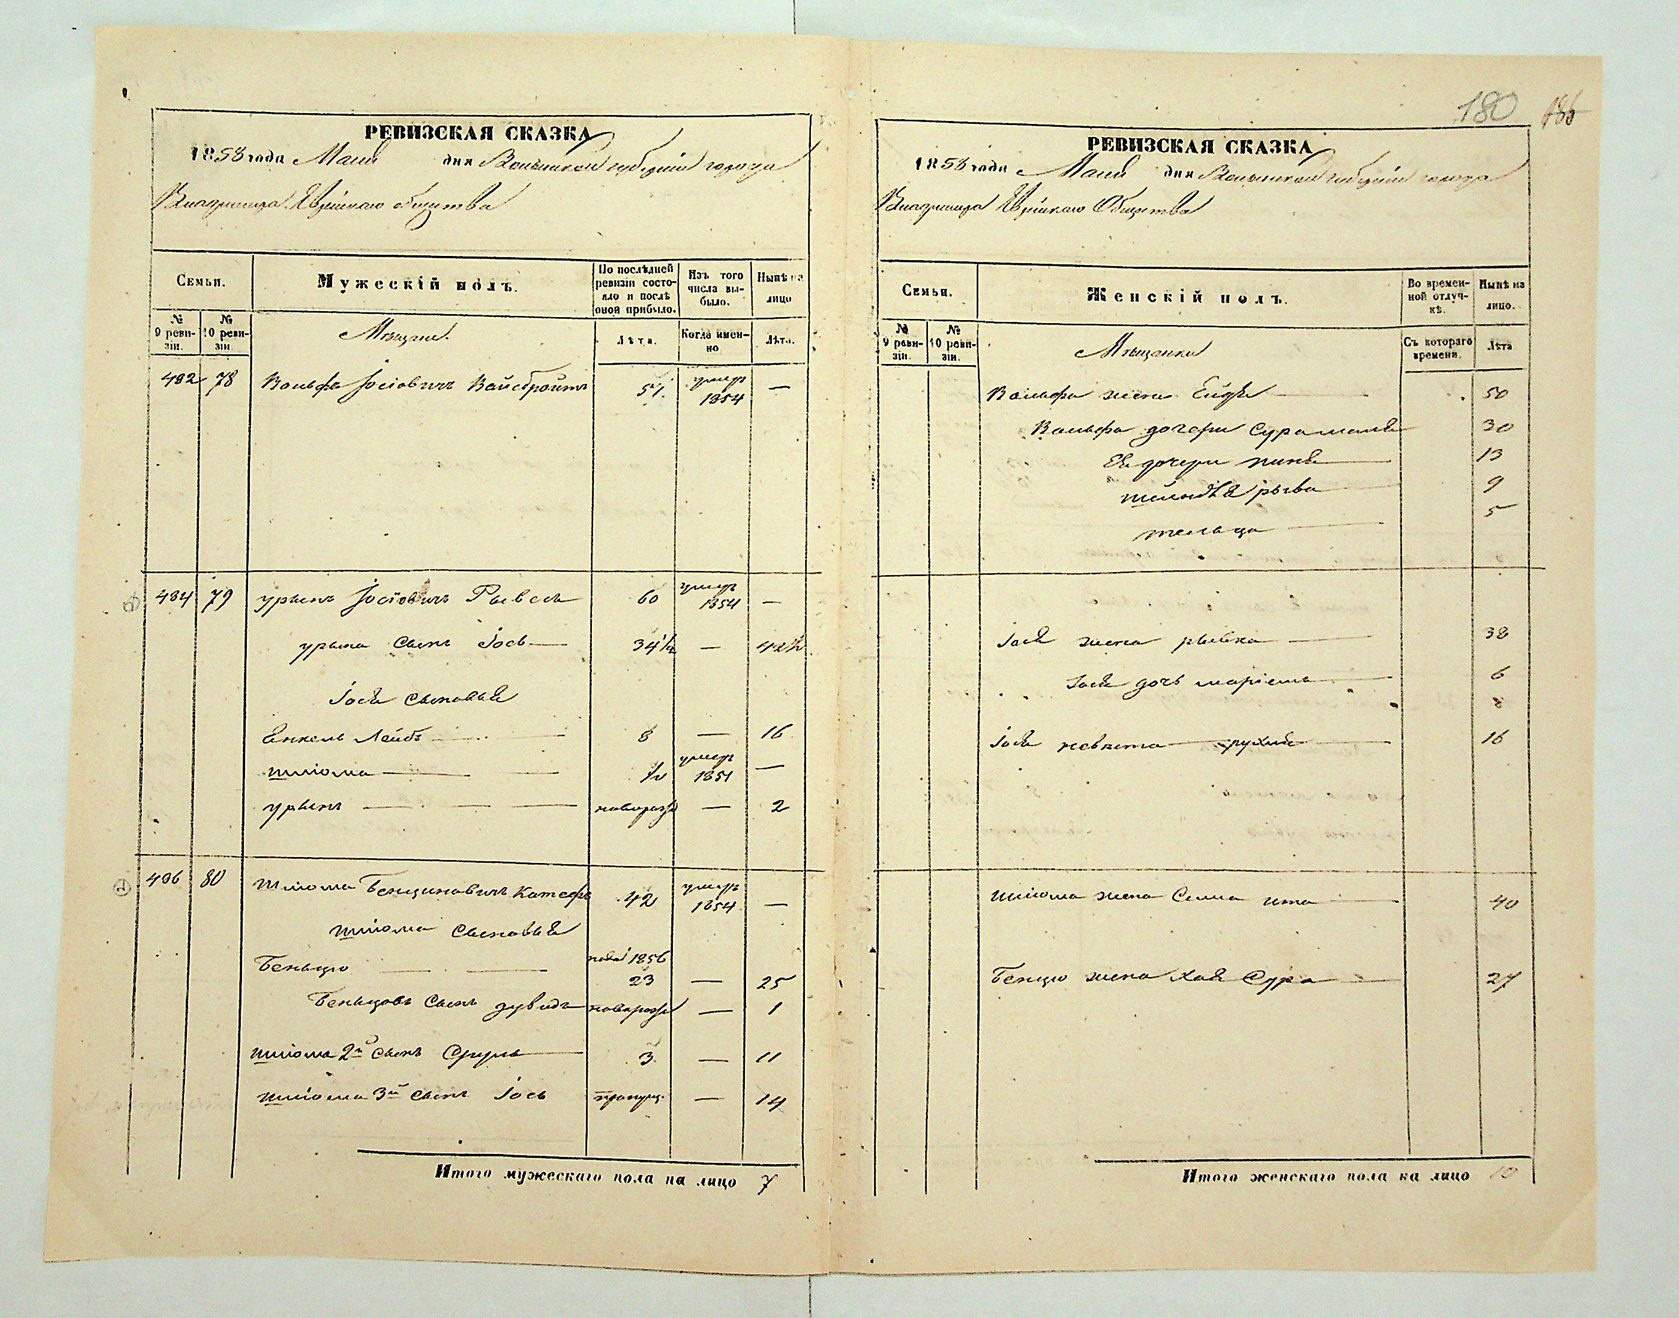 180 186
РЕВИЗСКАЯ СКАЗКА
1858 года Маия дня Волынской губерніи города
Владимира Еврейскаго общества
Семьи.
№ 9 ревизіи.
№ 10 ревизіи.
Мужескій полъ.
По послѣдней ревизіи состояло и послѣ оной прибыло.
Изъ того числа выбыло.
Нынѣ на лицо
Лѣта.
Когда именно
Лѣта.
Мѣщане.
482 78 Вольфъ Іосіовичъ Вайсбройтъ 51 умеръ 1854 —
484 79 Урынъ Іосіовичъ Рывесъ 60 умеръ 1854 —
Урына сынъ Іось 34½ — 42½
Іося сыновья
Енкель Лейбъ 8 — 16
Шліома ½ умеръ 1851 —
Урынъ новорозж — 2
486 80 Шліома Бенціновичъ 42 умеръ 1854 —
Шліома сыновья
Беньцю 1856 23 — 25
Беньцовъ сынъ Дувидъ новорозж — 1
Шліома 2й сынъ Сруль 3 — 11
Шліома 3й сынъ Іось пропущ. — 14
Итого мужескаго пола на лицо 7
РЕВИЗСКАЯ СКАЗКА
1858 года Маия дня Волынской губерніи города
Владимира Еврейскаго Общества
Семьи.
№ 9 ревизіи.
№ 10 ревизіи.
Женскій полъ.
Во временной отлучкѣ.
Нынѣ на лицо.
Съ котораго времени.
Лѣта
Мѣщанки
Вольфа жена Ейдя 50
Вольфа дочери Сура 30
Ея дочери 13
Рыва 9
5
Іося жена Рывка 38
Іося дочь Маріемъ 6
8
Іося невѣста Рухля 16
Шліома жена Сема Ита 40
Бенцю жена Хая Сура 27
Итого женскаго пола на лицо 10